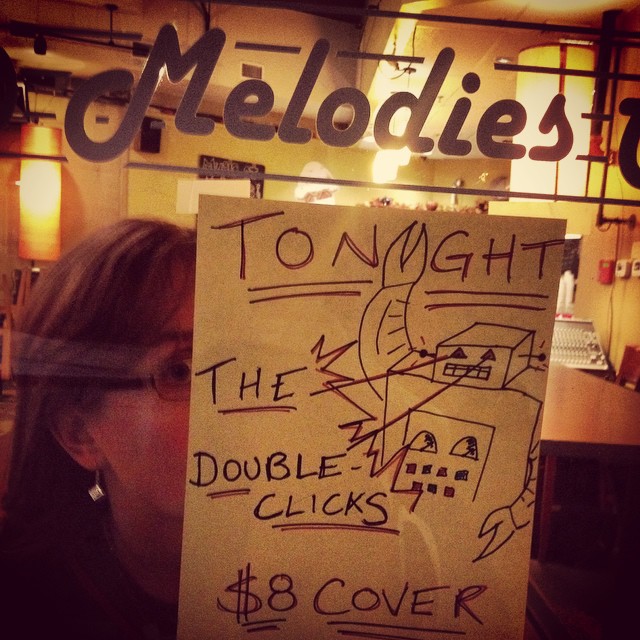 Melodies
TONIGHT
THE
DOUBLE-
CLICKS
$8 COVER